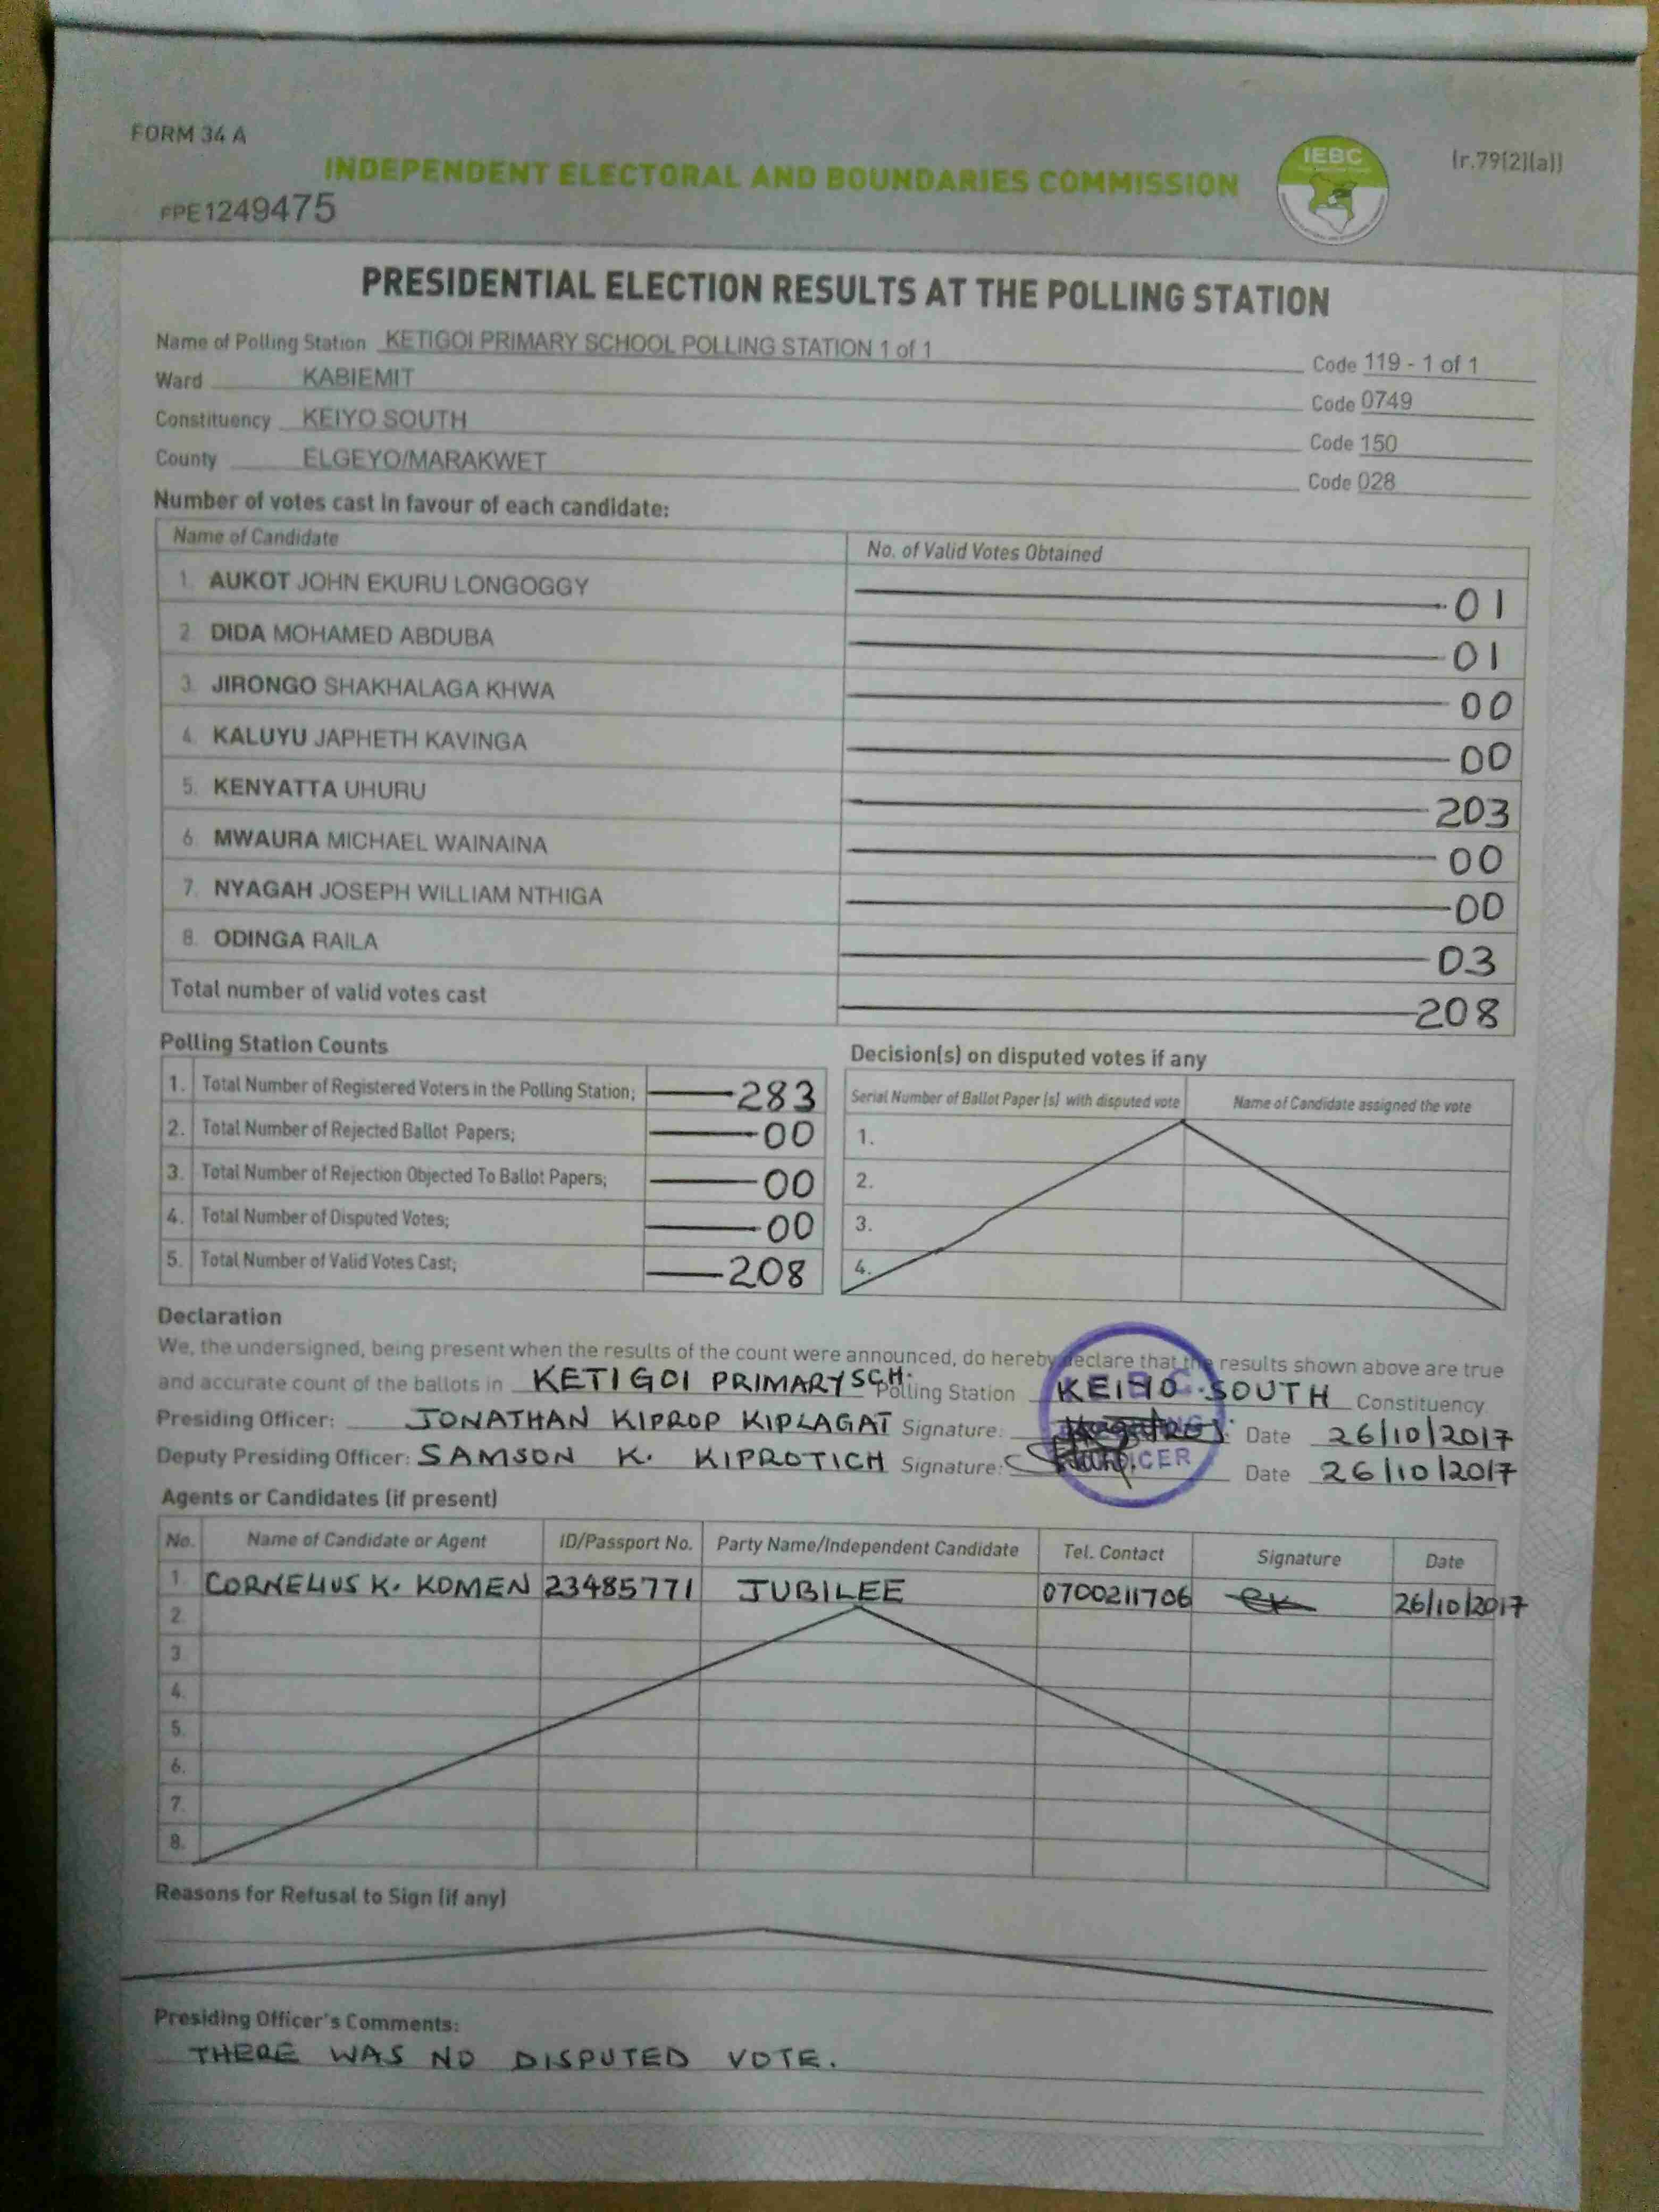 FORM 34 A
INDEPENDENT ELECTORAL AND BOUNDARIES COMMISSION
IEBC
(r.79(2)(a))
FPE1249475
PRESIDENTIAL ELECTION RESULTS AT THE POLLING STATION
Name of Polling Station KETIGOI PRIMARY SCHOOL POLLING STATION 1 of 1 Code 119 - 1 of 1
Ward KABIEMIT Code 0749
Constituency KEIYO SOUTH Code 150
County ELGEYO/MARAKWET Code 028
Number of votes cast in favour of each candidate:
Name of Candidate No. of Valid Votes Obtained
1. AUKOT JOHN EKURU LONGOGGY 01
2. DIDA MOHAMED ABDUBA 01
3. JIRONGO SHAKHALAGA KHWA 00
4. KALUYU JAPHETH KAVINGA 00
5. KENYATTA UHURU 203
6. MWAURA MICHAEL WAINAINA 00
7. NYAGAH JOSEPH WILLIAM NTHIGA 00
8. ODINGA RAILA 03
Total number of valid votes cast 208
Polling Station Counts
1. Total Number of Registered Voters in the Polling Station; 283
2. Total Number of Rejected Ballot Papers; 00
3. Total Number of Rejection Objected To Ballot Papers; 00
4. Total Number of Disputed Votes; 00
5. Total Number of Valid Votes Cast; 208
Decision(s) on disputed votes if any
Serial Number of Ballot Paper (s) with disputed vote Name of Candidate assigned the vote
1.
2.
3.
4.
Declaration
We, the undersigned, being present when the results of the count were announced, do hereby declare that the results shown above are true
and accurate count of the ballots in KETIGOI PRIMARY SCH. Polling Station KEIYO SOUTH Constituency
Presiding Officer: JONATHAN KIPROP KIPLAGAT Signature: Date 26/10/2017
Deputy Presiding Officer: SAMSON K. KIPROTICH Signature: Date 26/10/2017
Agents or Candidates (if present)
No. Name of Candidate or Agent ID/Passport No. Party Name/Independent Candidate Tel. Contact Signature Date
1. CORNELIUS K. KOMEN 23485771 JUBILEE 0700211706 26/10/2017
2.
3
4.
5.
6.
7.
8.
Reasons for Refusal to Sign (if any)
Presiding Officer's Comments:
THERE WAS NO DISPUTED VOTE.